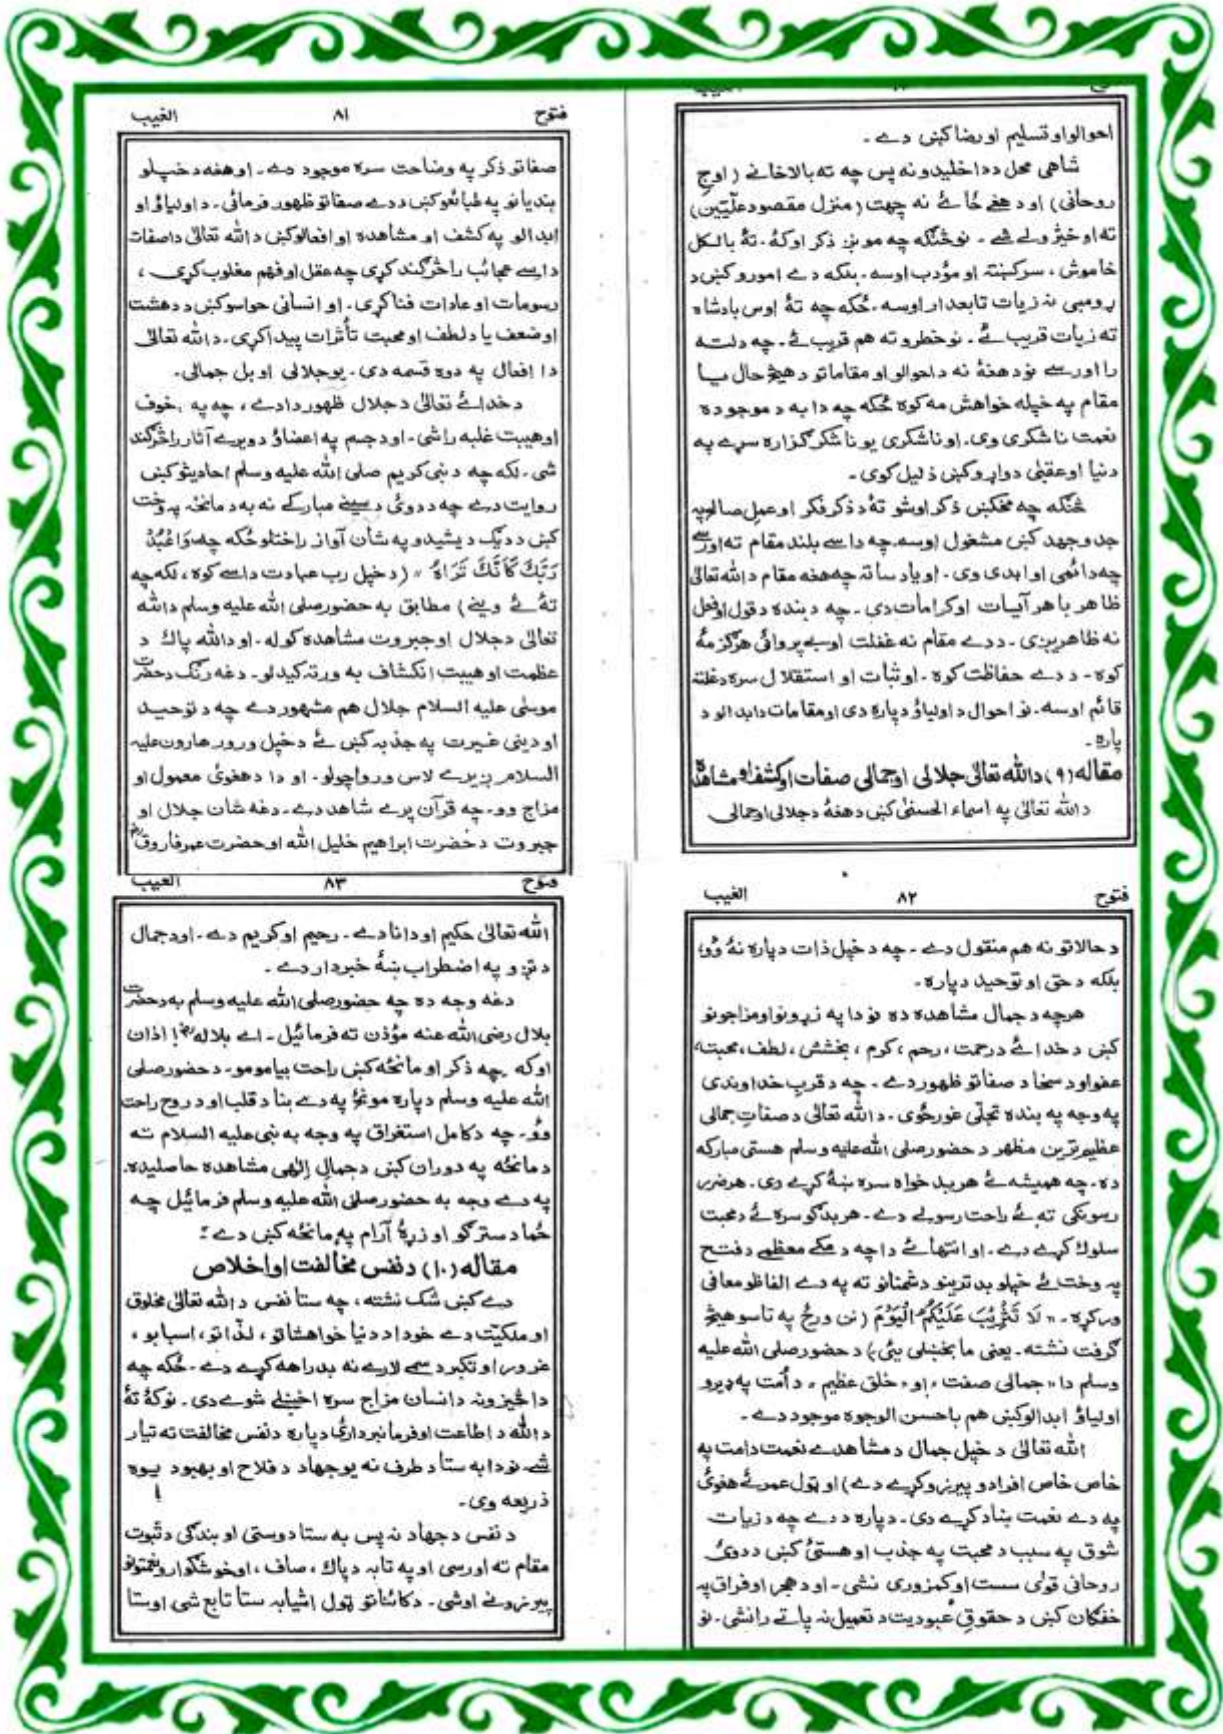 احوالو او تسلیم او رضا کښ دے ۔
شاهی محل ددا خلیدو نه پس چه ته بالاخانے ( اوج
روحانی) او د هغے ځائے نه چهت ( منزل مقصود علّیّین)
ته او خیژولے شے ۔ نو څنګه چه مونږ ذکر اوکۀ ۔ تۀ بالکل
خاموش ، سرکښته او مؤدب اوسه ۔ بلکه دے امورو کښ د
ړومبی نه زیات تابعدار اوسه ۔ ځکه چه تۀ اوس بادشاه
ته زیات قریب ئے ۔ نو خطرو ته هم قریب ئے ۔ چه دلته
را اورسے نو د هغۀ نه د احوالو او مقاماتو د هیڅ حال یا
مقام په خپله خواهش مه کوه ځکه چه دا به د موجوده
نعمت ناشکری وی ۔ او ناشکری یو ناشکر گزاره سرے په
دنیا او عقبٰی دواړو کښ ذلیل کوی ۔
څنګه چه مخکښ ذکر اوشو تۀ د ذکر فکر او عمل صالح په
جدوجهد کښ مشغول اوسه چه داسے بلند مقام ته اورسے
چه دائمی او ابدی وی ۔ او یاد ساته چه هغه مقام د الله تعالیٰ
ظاهر باهر آیات او کرامات دی ۔ چه د بنده د قول او فعل
نه ظاهریږی ۔ د دے مقام نه غفلت او بے پروائی هرگز مۀ
کوه ۔ د دے حفاظت کوه ۔ او ثبات او استقلال سره دغلته
قائم اوسه ۔ نو احوال د اولیاؤ دپاره دی او مقامات د ابدالو د
پاره ۔
مقاله (۹) د الله تعالیٰ جلالی او جمالی صفات او کشف او مشاهده
د الله تعالیٰ په اسماء الحسنٰی کښ د هغۀ د جلالی او جمالی
فتوح ۸۱ الغیب
صفاتو ذکر په وضاحت سره موجود دے ۔ او هغه د خپلو
بندیانو په طبائعو کښ د دے صفاتو ظهور فرمائی ۔ د اولیاؤ او
ابدالو په کشف او مشاهده او افعالو کښ د الله تعالیٰ د اصفات
داسے عجائب راڅرګند کړی چه عقل او فهم مغلوب کړی ،
رسومات او عادات فنا کړی ۔ او انسانی حواسو کښ د دهشت
او ضعف یا د لطف او محبت تأثرات پیدا کړی ۔ د الله تعالیٰ
دا افعال په دوه قسمه دی ۔ یو جلالی او بل جمالی ۔
د خدائے تعالیٰ د جلال ظهور دا دے ، چه په خوف
او هیبت غلبه راشی ۔ او د جسم په اعضاؤ د ویرے آثار راڅرګند
شی ۔ لکه چه د نبی کریم صلی الله علیه وسلم احادیثو کښ
روایت دے چه د دوئ د سینے مبارکے نه به د مانځه په وخت
کښ د دیگ د یشیدو په شان آواز راختلو ځکه چه وَاعْبُدْ
رَبَّكَ كَأَنَّكَ تَرَاهُ " ( د خپل رب عبادت داسے کوه ، لکه چه
تۀ ئے وینے ) مطابق به حضور صلی الله علیه وسلم د الله
تعالیٰ د جلال او جبروت مشاهده کوله ۔ او د الله پاك د
عظمت او هیبت انکشاف به ورته کیدلو ۔ دغه رنګ د حضرت
موسٰی علیه السلام جلال هم مشهور دے چه د توحید
او دینی غیرت په جذبه کښ ئے د خپل ورور هارون علیه
السلام ږیرے لاس ورواچولو ۔ او دا د هغوئ معمول او
مزاج وو ۔ چه قرآن پرے شاهد دے ۔ دغه شان جلال او
جبروت د حضرت ابراهیم خلیل الله او حضرت عمر فاروق رض
فتوح ۸۲ الغیب
د حالاتو نه هم منقول دے ۔ چه د خپل ذات دپاره نۀ وو ،
بلکه د حق او توحید دپاره ۔
هر چه د جمال مشاهده ده نو دا په زړونو او مزاجونو
کښ د خدائے د رحمت ، رحم ، کرم ، بخشش ، لطف ، محبت ،
عفو او د سخا د صفاتو ظهور دے ۔ چه د قرب خداوندی
په وجه په بنده تجلّی غورځوی ۔ د الله تعالیٰ د صفات جمالی
عظیم ترین مظهر د حضور صلی الله علیه وسلم هستی مبارکه
ده ۔ چه همیشه ئے هر بد خواه سره ښۀ کړے دی ۔ هر ضرر
رسونکی ته ئے راحت رسولے دے ۔ هر بدگو سره ئے د محبت
سلوك کړے دے ۔ او انتها ئے دا چه د مکے معظمے د فتح
په وخت ئے خپلو بدترینو دشمنانو ته په دے الفاظو معافی
ورکړه ۔ " لَا تَثْرِيْبَ عَلَيْكُمُ الْيَوْمَ ( نن ورځ په تاسو هیڅ
گرفت نشته ۔ یعنی ما بخښلی یئ ) د حضور صلی الله علیه
وسلم دا " جمالی صفت ، او ، خلق عظیم " د اُمت په ډیرو
اولیاؤ ابدالو کښ هم باحسن الوجوه موجود دے ۔
الله تعالیٰ د خپل جمال د مشاهدے نعمت د امت په
خاص خاص افرادو پیرزو کړے دے ) او ټول عمر ئے هغوئ
په دے نعمت ښاد کړے دی ۔ دپاره د دے چه د زیات
شوق په سبب د محبت په جذب او هستئ کښ د دوئ
روحانی قوٰی سست او کمزوری نشی ۔ او د هجر او فراق په
خفګان کښ د حقوقِ عُبودیت د تعمیل نه پاتے رانشی ۔ نو
فتوح ۸۳ الغیب
الله تعالیٰ حکیم او دانا دے ۔ رحیم او کریم دے ۔ او د جمال
د تږو په اضطراب ښۀ خبردار دے ۔
دغه وجه ده چه حضور صلی الله علیه وسلم به د حضرت
بلال رضی الله عنه مؤذن ته فرمائیل ۔ اے بلاله رض ! اذان
اوکه چه ذکر او مانځه کښ راحت بیا مومو ۔ د حضور صلی
الله علیه وسلم دپاره مونځ په دے بنا د قلب او د روح راحت
وؤ ۔ چه د کامل استغراق په وجه به نبی علیه السلام ته
د مانځه په دوران کښ د جمالِ اِلٰهی مشاهده حاصلیده .
په دے وجه به حضور صلی الله علیه وسلم فرمائیل چه
ځما د سترگو او زړۀ آرام په مانځه کښ دے :
مقاله (۱۰) د نفس مخالفت او اخلاص
دے کښ شک نشته ، چه ستا نفس د الله تعالیٰ مخلوق
او ملکیّت دے خو د دنیا خواهشاتو ، لذّاتو ، اسبابو ،
غرور او تکبر د سمے لارے نه بدراهه کړے دے ۔ ځکه چه
دا څیزونه د انسان مزاج سره اخښلے شوے دی ۔ نو کۀ تۀ
د الله د اطاعت او فرمانبردارئ دپاره د نفس مخالفت ته تیار
شے نو دا به ستا د طرف نه یو جهاد د فلاح او بهبود یوه
ذریعه وی ۔
د نفس د جهاد نه پس به ستا دوستی او بندگی د ثبوت
مقام ته اورسی او په تا به د پاك ، صاف ، او خوشگوارو نعمتونو
پیرزونے اوشی ۔ د کائناتو ټول اشیا به ستا تابع شی او ستا